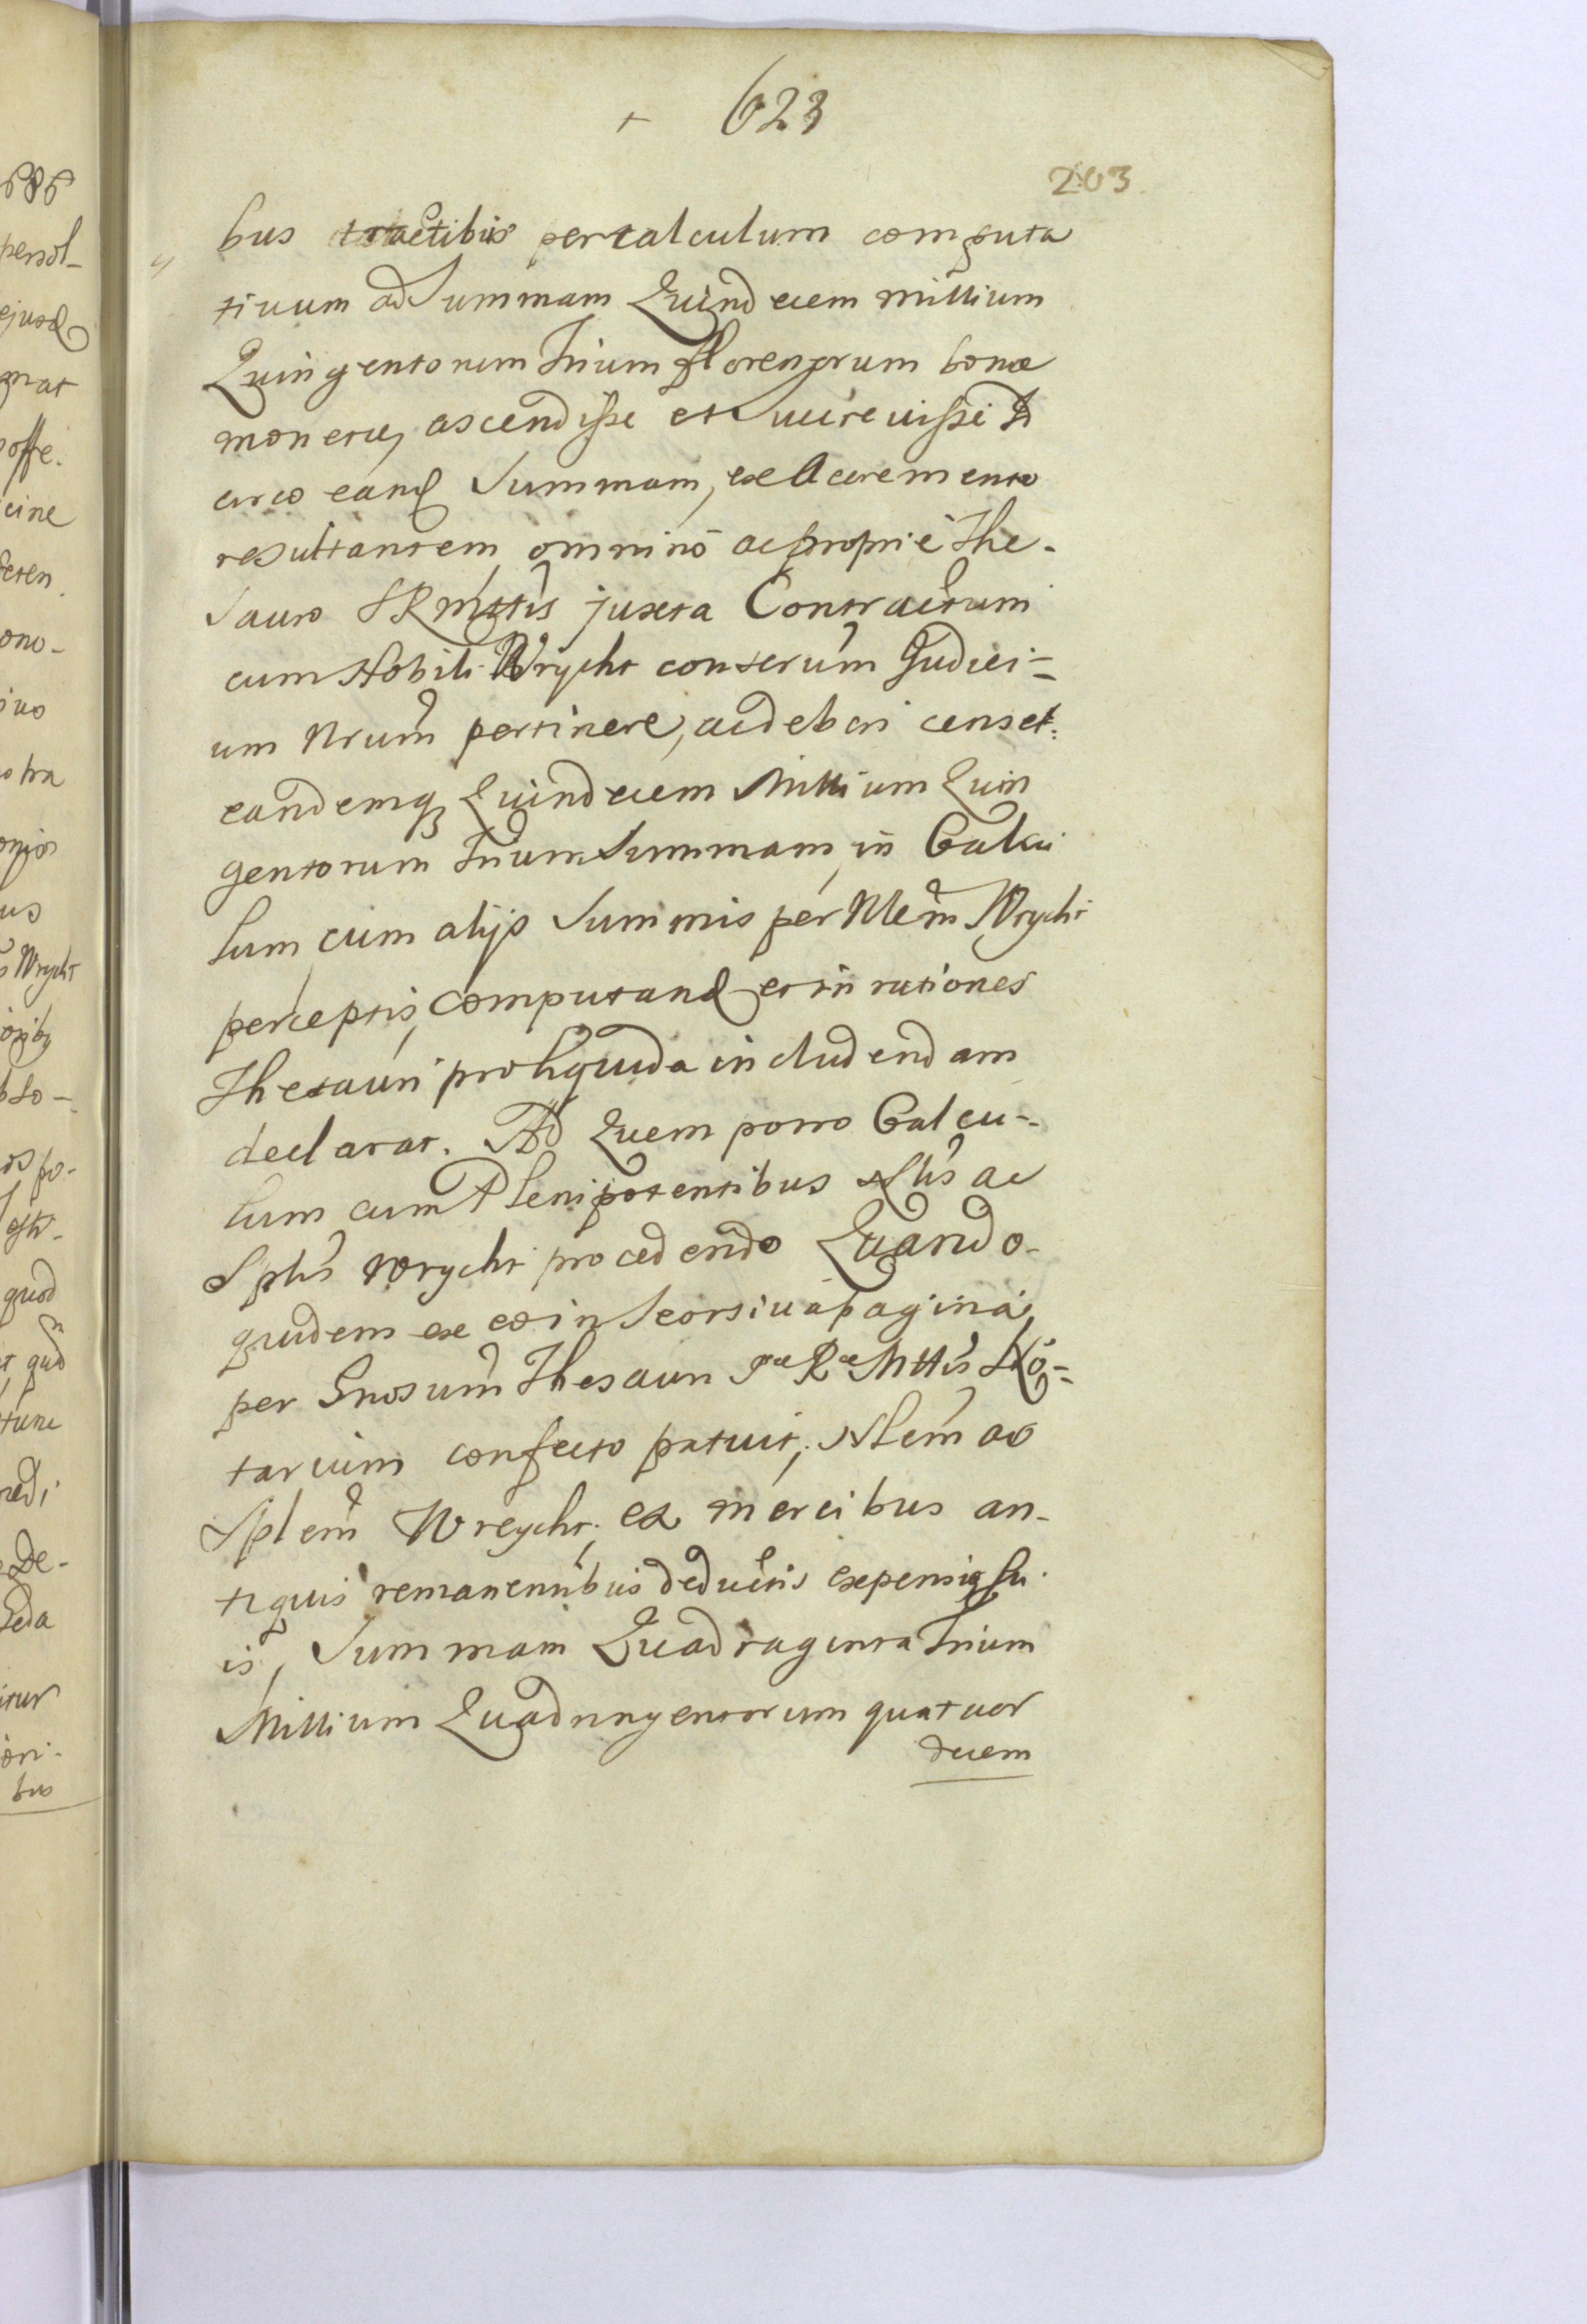 + 623
203
bus tractibus per calculum computa
tiuum ad Summam Quindecem millium
Quingentorum trium florenorum bonæ
monetæ, ascendisse et
circo eand Summam, ex Accremento
resultantem omninò ac propriè The-
sauro SRMttis juxta Contractum
cum Nobili Wrycht conterum Judici-
um Nrum pertinere, ac deberi censet:
eandemq Quindecem Millium Quin
gentorum trium Summam, in Calcu
lum cum alijs Summis per Nlem Wrycht
perceptis, computand et in rationes
Thesauri pro liquida includendam
declarat. Ad Quem porro Calcu-
lum cum Plenipotentibus Nlis ac
Splis Wrycht procedendo Quando-
quidem ex eo in Seorsiua pagina
per Gnosum Thesauri Sæ Ræ Mttis No-
tarium confecto patuit, Nlem ac
Splem Wreycht, ex mercibus an-
tiquis remanentibus deductis expensis su
is, Summam Quadraginta trium
Millium Quadringentorum quatuor
decem